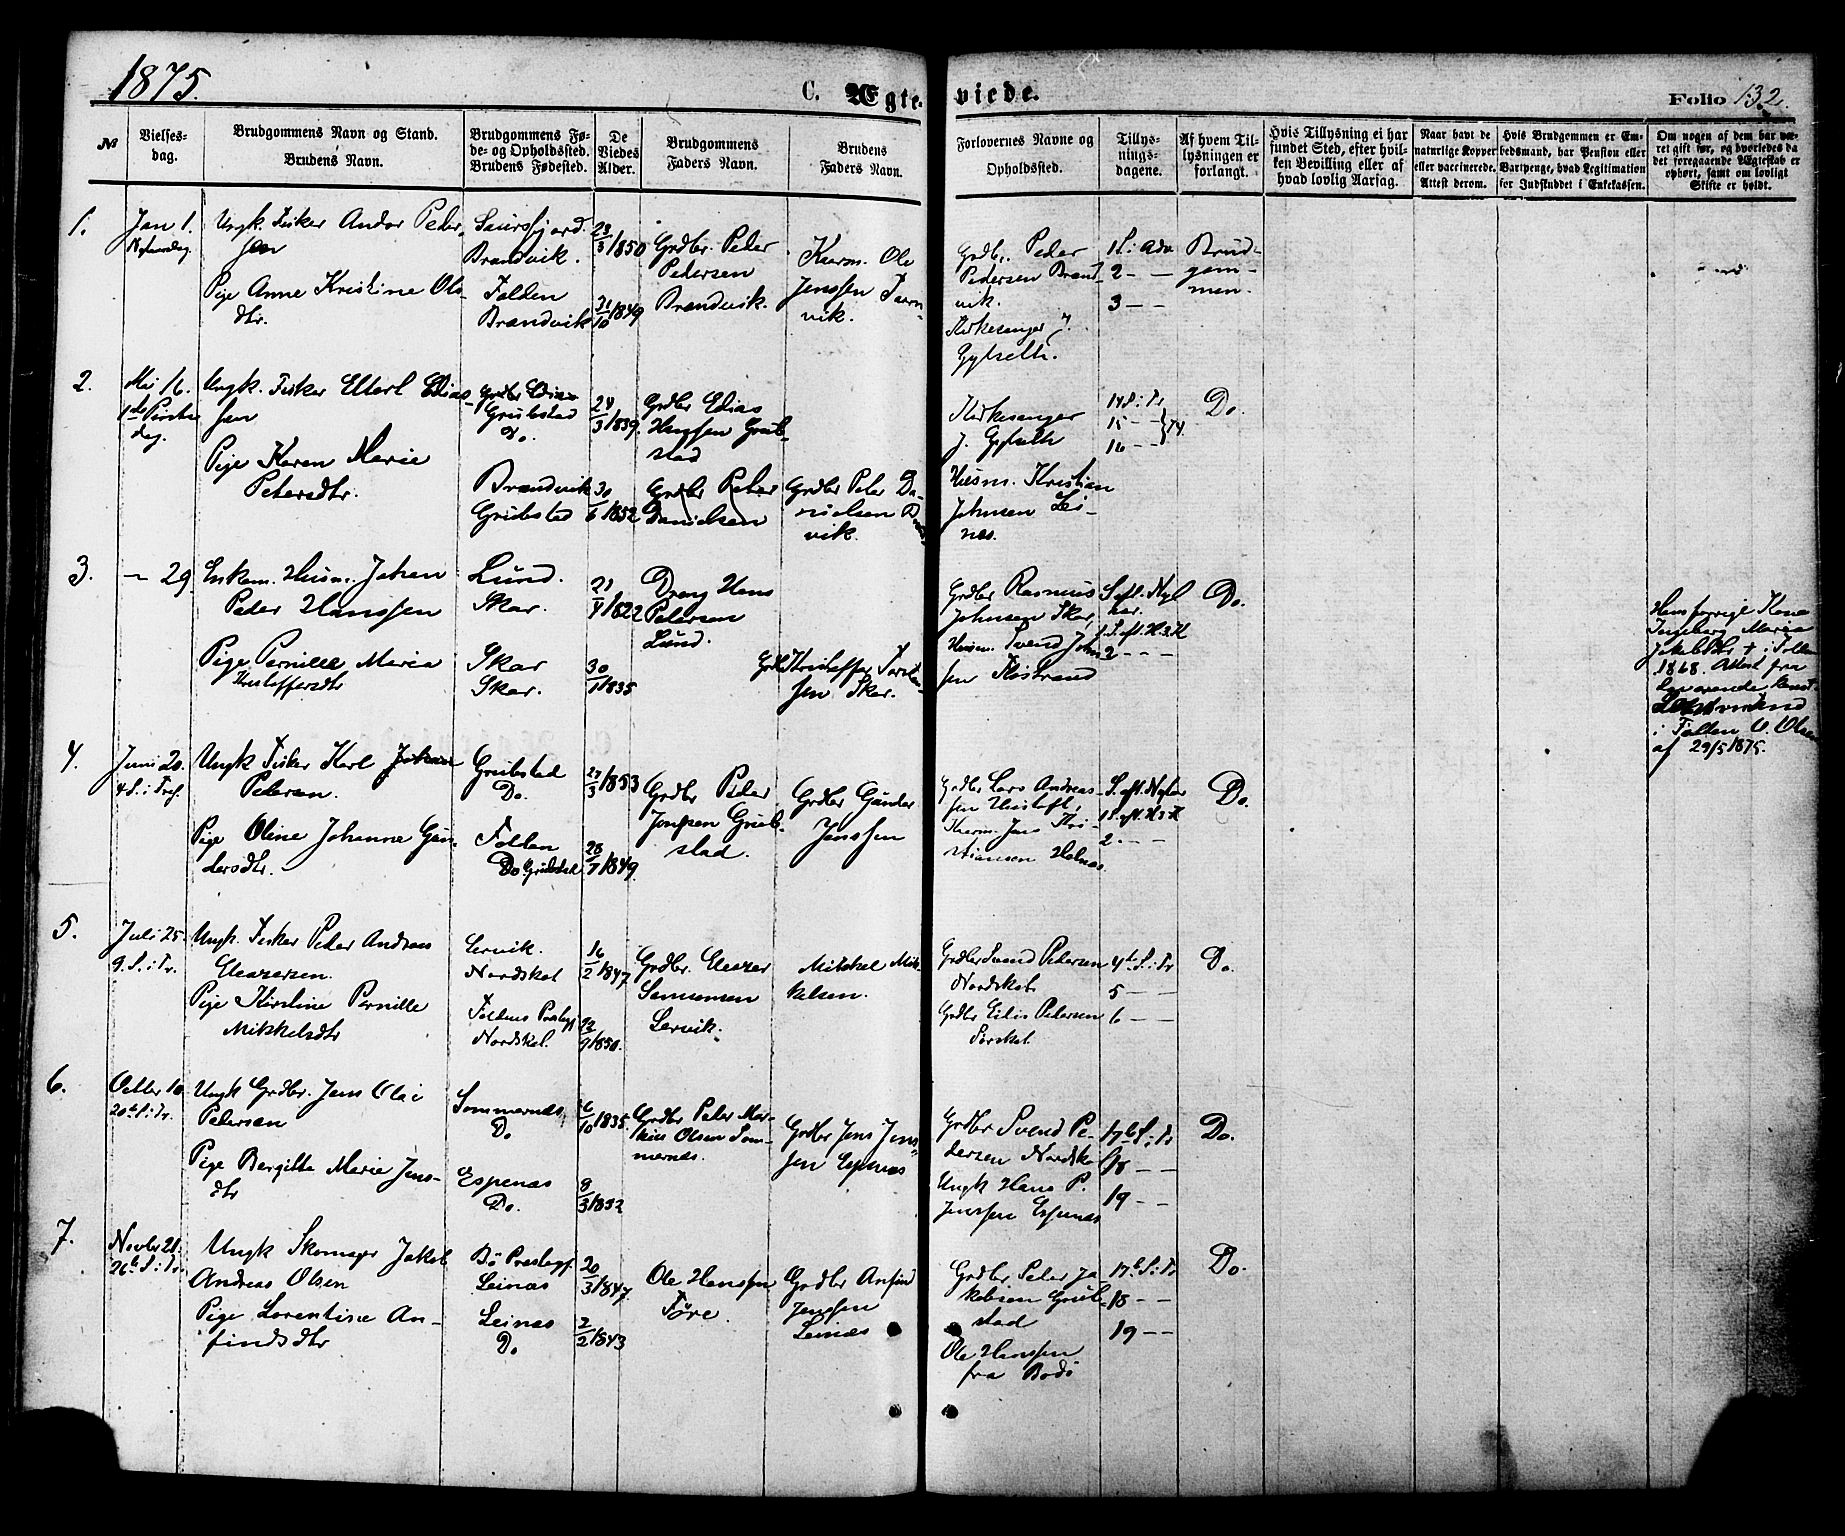 1875.
C. Ægte-
viede.
Folio 132.
№
Vielses-
dag.
Brudgommens Navn og Stand.
Brudens Navn.
Brudgommens Fø-
de- og Opholdssted.
Brudens Fødested.
De
Viedes
Alder.
Brudgommens
Faders Navn.
Brudens
Faders Navn.
Forlovernes Navne og
Opholdssted.
Tillys-
nings-
dagene.
Af hvem Til-
lysningen er
forlangt.
Hvis Tillysning ei har
fundet Sted, efter hvil-
ken Bevilling eller af
hvad lovlig Aarsag.
Naar havt de
naturlige Kopper
eller vaccinerede.
Attest derom.
Hvis Brudgommen er Em-
bedsmand, har Pension eller
Vartpenge, hvad Legitimation
for Indskuddet i Enkekassen.
Om nogen af dem har væ-
ret gift før, og hvorledes da
det foregaaende Ægteskab er
ophørt, samt om lovligt
Skifte er holdt.
1.
Jan 1.
Nytaarsdag.
Ungk. Fisker Andor Peder-
sen
Pige Anne Kristine Ols-
dtr.
Brandvik.
Folden
Brandvik
23/3 1850
31/10 1849
Grdbr. Peder
Pedersen
Brandvik.
Ole
Jenssen
vik.
Grdb. Peder
Pedersen Brand-
vik.
Kirkesanger J.
Gylseth.
1 S. i Adv
2 — —
3 — —
Brud-
gom-
men.
2.
Mai 16.
1ste Pintse
dag.
Ungk. Fisker Ellert Edias-
sen
Pige Karen Marie
Petersdtr.
Grdbr Edias
Grübstad
Do.
Brandvik
Grübstad
24/3 1839.
30/6 1852
Grdbr Edias
Grüb-
stad
Grdbr Peter
Danielsen
Grdbr Peter Da-
nielsen
vik.
Kirkesanger
J. Gylseth
Husm. Kristian
Johnsen Lei-
nes.
14 S. i Tr
15 — —
16 — —
74.
Do.
3.
— 29.
Enkem. Husm. Johan
Peder Hanssen
Pige Pernille Maria
Kristoffersdtr
Lund.
Skar.
Skar
Skar.
21/4 1822
30/1 1835
Dreng Hans
Petersen
Lund.
Grdb Kristoffer
sen Skar.
Grdbr Rasmus
Johnsen Skar,
Husm. Svend John
sen Kistrand
S. eft. Nyt
aar.
1 S. eft. H. 3 K
2 — —
Do.
Hans forrige Kone
Ingeborg Maria
Jakobsdtr + i Folden
1868. Attest fra
i Folden O. Olsen
af 29/5 1875.
4.
Juni 20.
4 S. i Tref.
Ungk Fisker Karl Johan
Petersen.
Pige Oline Johanna Gun-
dersdtr.
Grübstad
Do.
Folden
Do Grübstad
27/3 1853
28/7 1849.
Grdbr Peder
Grüb-
stad.
Grdbr Gunder
Jenssen
Grdbr Lars Andreas-
sen
Jens Kri-
stiansen Helnes
S. eft. Nytaar
1 S. eft. H 3 K
2. — —
Do.
5.
Juli 25.
9. S. i Tr.
Ungk. Fisker Peder Andreas
Eleazersen.
Pige Kirstine Pernille
Mikkelsdtr
Lervik.
Nordskot
Foldens Præstegj
Nordskot.
16/2 1847
22/9 1850.
Grdbr. Eleazer
Samuelsen
Lervik.
Mikkel Mik-
kelsen.
Grdbr Svend Petersen
Nordskot.
Grdbr Eilis Petersen
Sørskot.
4de S. i Tr
5 — —
6 — —
Do.
6.
Octbr 10
20de S. i Tr.
Ungk Grdbr. Jens Olai
Pedersen
Pige Bergitta Marie Jens-
dtr
Sommernæs
Do
Espenæs
Do.
6/10 1835.
8/3 1852
Grdbr Peter Mar-
kus Olsen Som-
mernæs.
Grdbr Jens Jens-
sen Espenæs
Grdbr Svend Pe-
dersen Nordskot
Ungk Hans P.
Jenssen Espenæs
17de S. i Tr
18 — —
19 — —
Do.
7.
Novbr 21.
26de S. i Tr.
Ungk Skomager Jakob
Andreas Olsen
Pige Lorentine An-
findsdtr
Bø Præstegj
Leinæs
Leinæs
Do
20/3 1847.
2/2 1843
Ole Hanssen
Føre.
Grdbr Anfind
Jenssen
Leinæs
Grdbr Peter Ja-
kobsen Grüb-
stad
Ole Hanssen
fra Bodø
17de S. i Tr
18 — —
19 — —
Do.